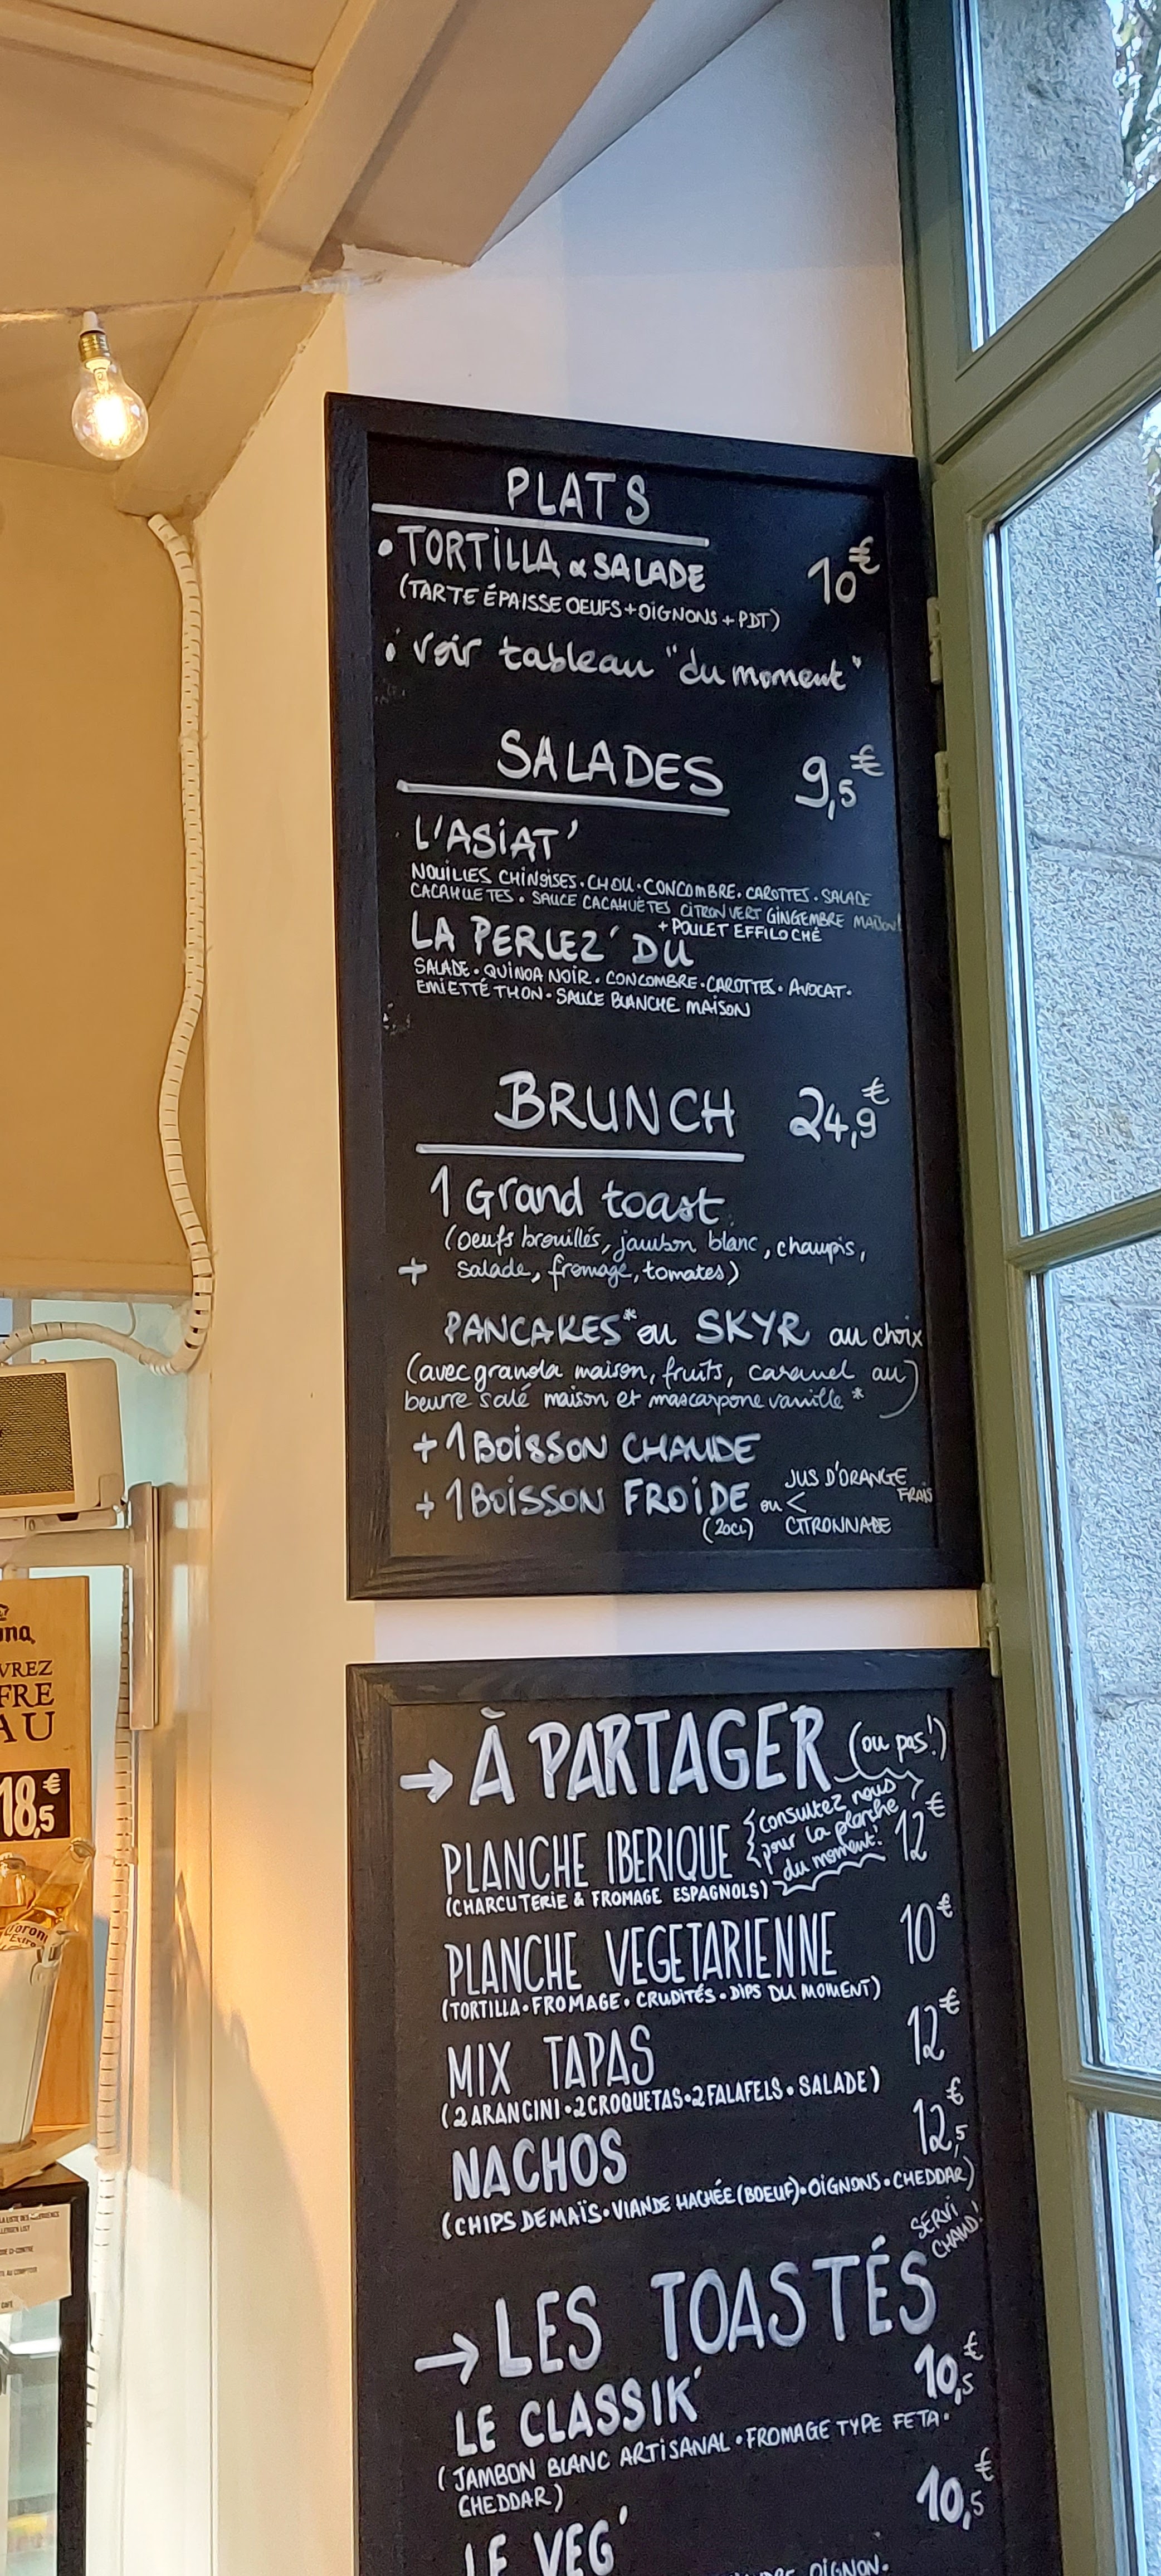 PLATS
• TORTILLA & SALADE 10€
(TARTE ÉPAISSE OEUFS + OIGNONS + PDT)
• voir tableau "du moment"
SALADES 9,5€
L'ASIAT'
NOUILLES CHINOISES • CHOU • CONCOMBRE • CAROTTES • SALADE
CACAHUETES • SAUCE CACAHUÈTES CITRON VERT GINGEMBRE MAISON!
+ POULET EFFILOCHÉ
LA PERLEZ' DU
SALADE • QUINOA NOIR • CONCOMBRE • CAROTTES • AVOCAT •
EMIETTÉ THON • SAUCE BLANCHE MAISON
BRUNCH 24,9€
1 Grand toast
(oeufs brouillés, jambon blanc, champis,
+ salade, fromage, tomates)
PANCAKES* ou SKYR au choix
(avec granola maison, fruits, caramel au
beurre salé maison et mascarpone vanille *)
+ 1 BOISSON CHAUDE
+ 1 BOISSON FROIDE ou < JUS D'ORANGE FRAIS
(20CL) CITRONNADE
→ À PARTAGER (ou pas!)
PLANCHE IBERIQUE 12€
consultez nous
pour la planche
du moment!
(CHARCUTERIE & FROMAGE ESPAGNOLS)
PLANCHE VEGETARIENNE 10€
(TORTILLA • FROMAGE • CRUDITÉS • DIPS DU MOMENT)
MIX TAPAS 12€
(2 ARANCINI • 2 CROQUETAS • 2 FALAFELS • SALADE)
NACHOS 12,5€
(CHIPS DE MAÏS • VIANDE HACHÉE (BOEUF) • OIGNONS • CHEDDAR)
SERVI
CHAUD!
→ LES TOASTÉS
LE CLASSIK' 10,5€
(JAMBON BLANC ARTISANAL • FROMAGE TYPE FETA •
CHEDDAR)
LE VEG' 10,5€
OIGNON •
VREZ
FRE
AU
18,5€
Corona
Extra